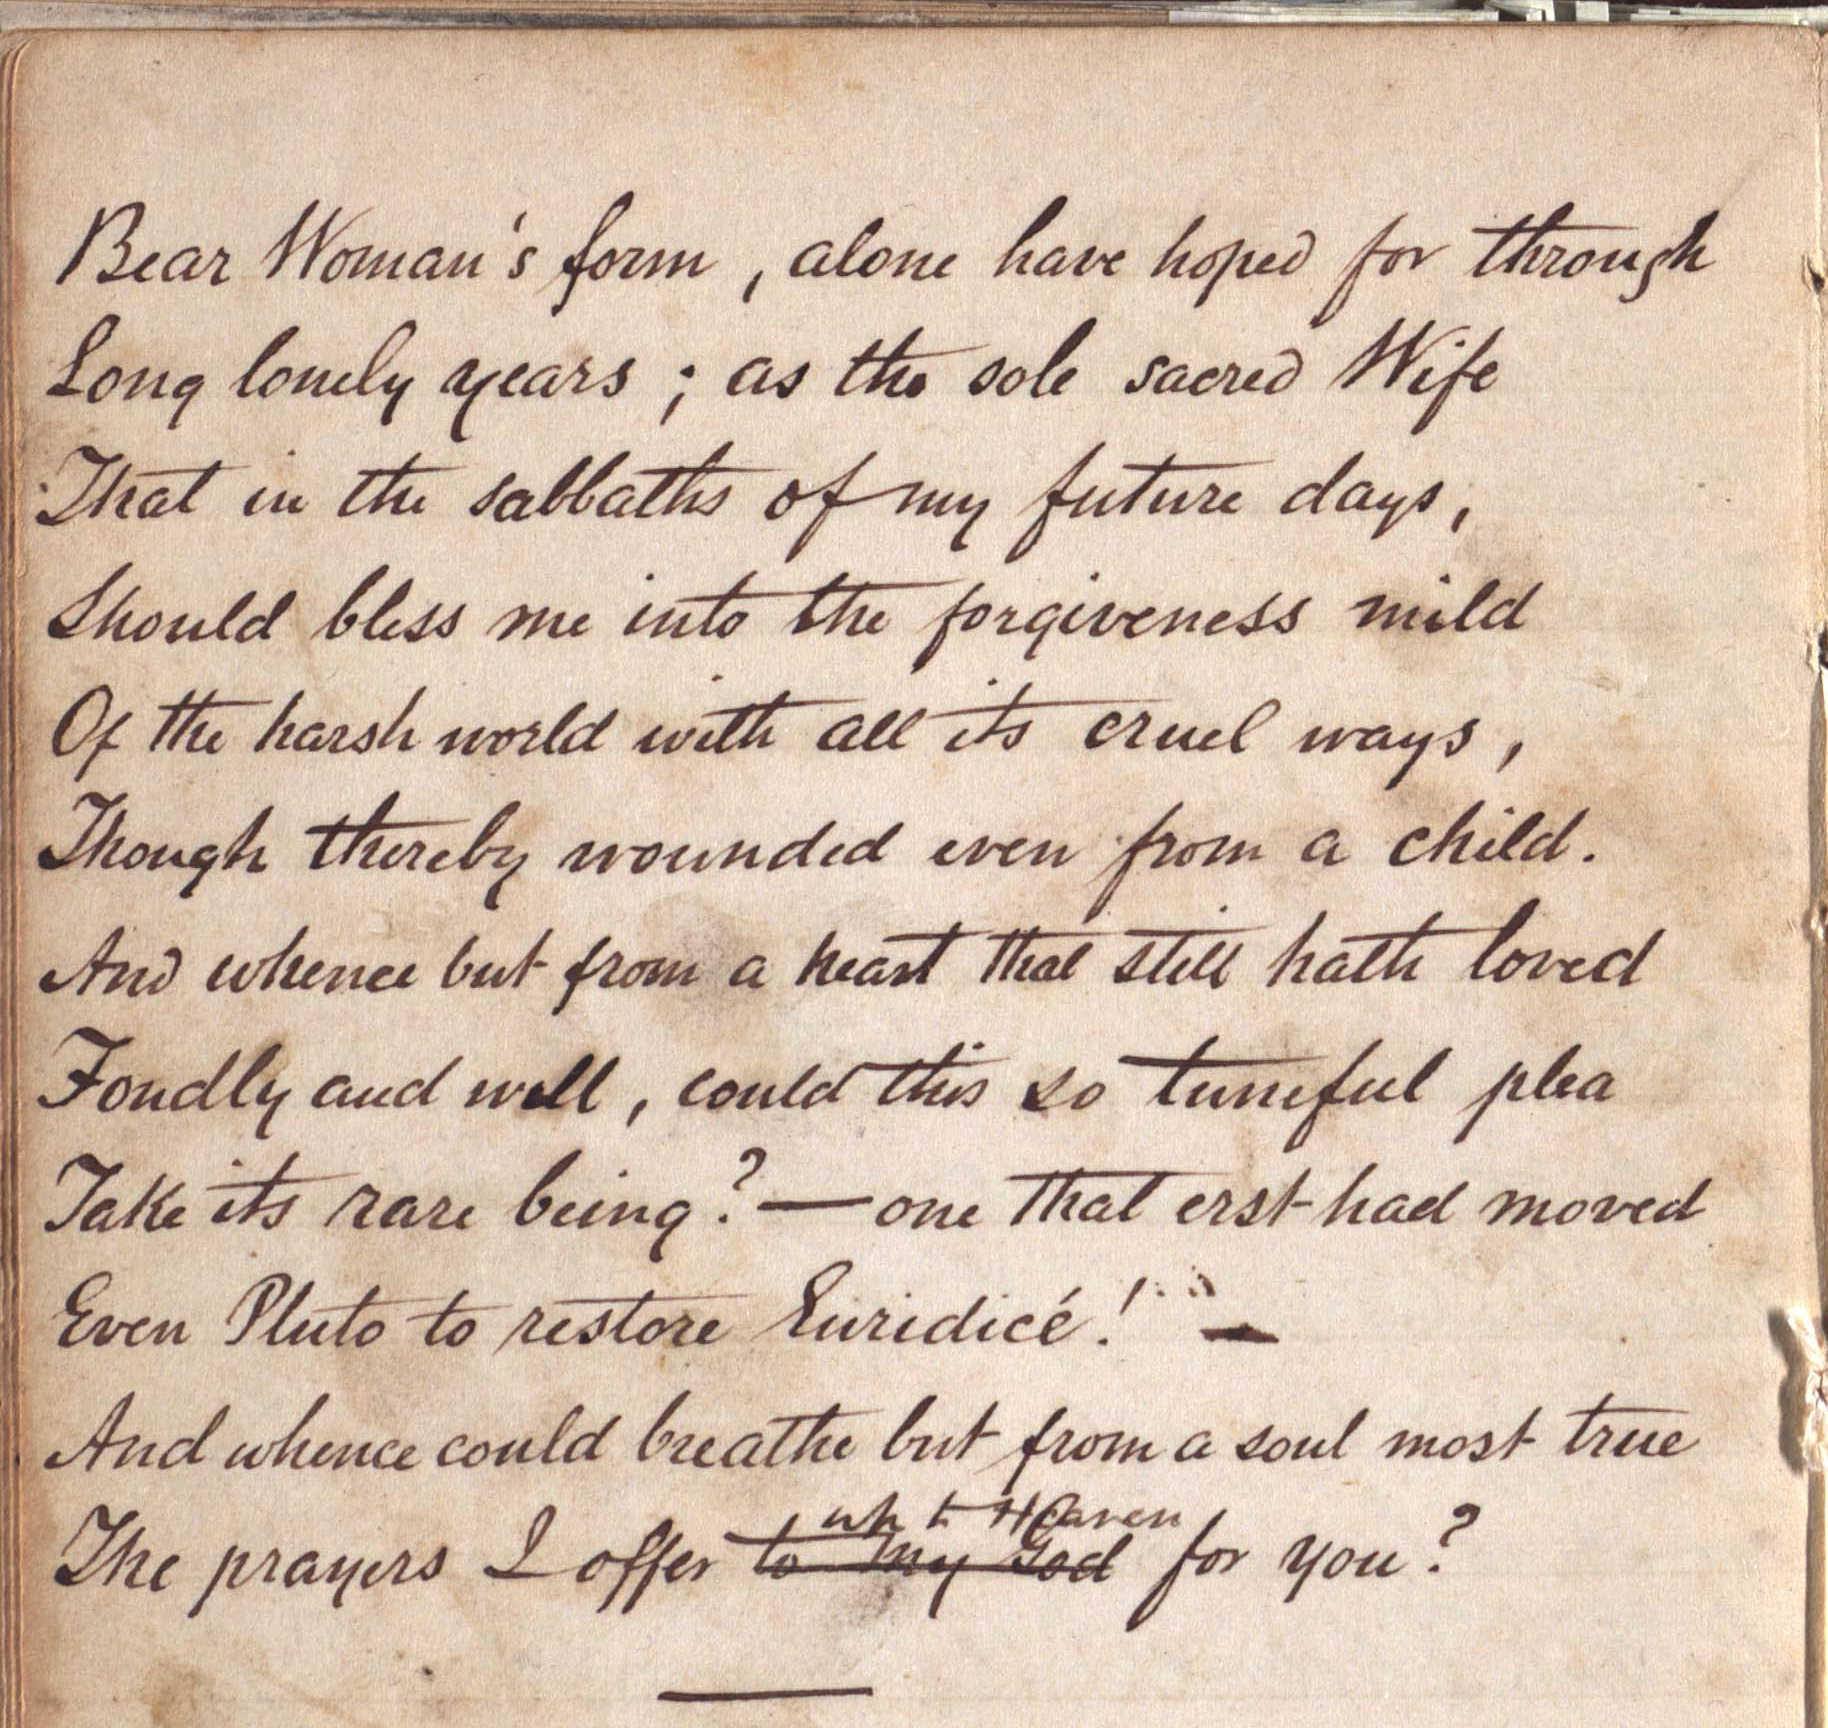 Bear Woman's form, alone have hoped for through
Long lonely years; as the sole sacred Wife
That in the sabbaths of my future days,
Should bless me into the forgiveness mild
Of the harsh world with all its cruel ways,
Though thereby wounded even from a child.
And whence but from a heart that still hath loved
Fondly and well, could this so tuneful plea
Take its rare being? — one that erst had moved
Even Pluto to restore Euridicé! —
And whence could breathe but from a soul most true
up to Heaven
The prayers I offer to my God for you?